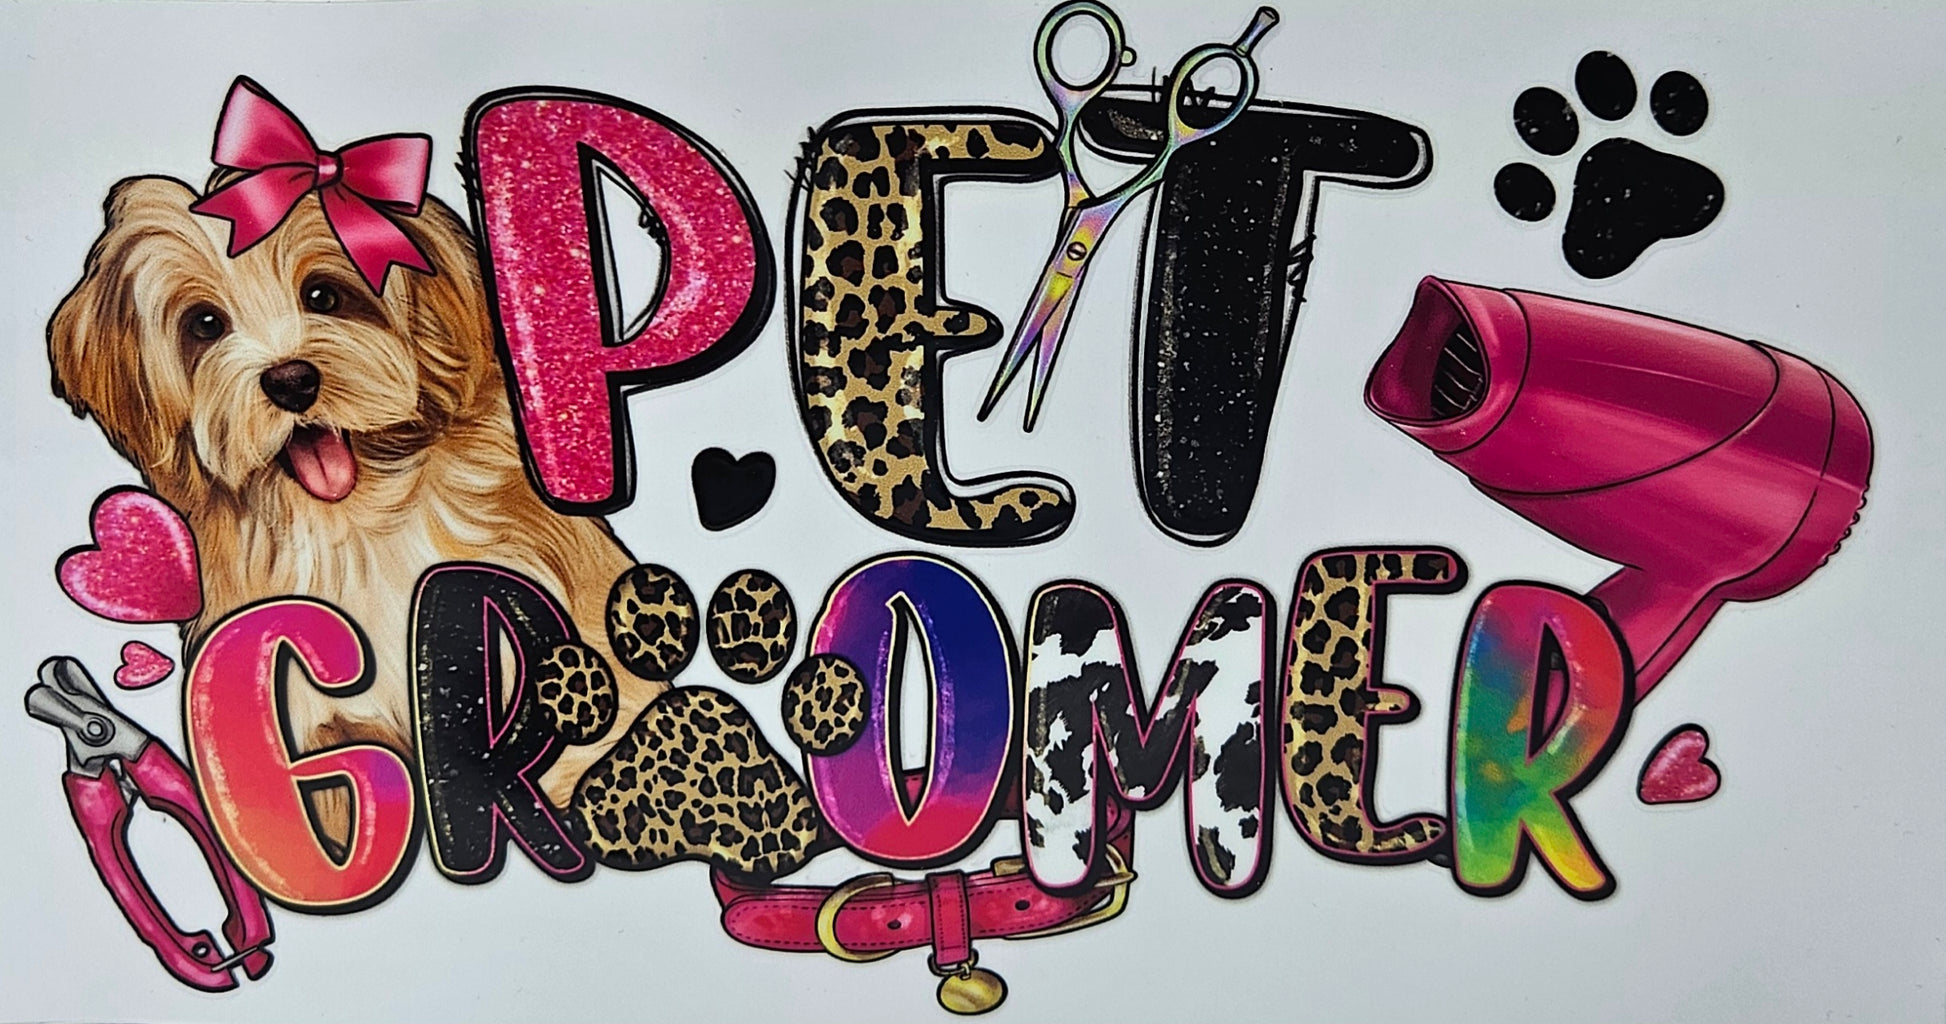 PET
GROOMER